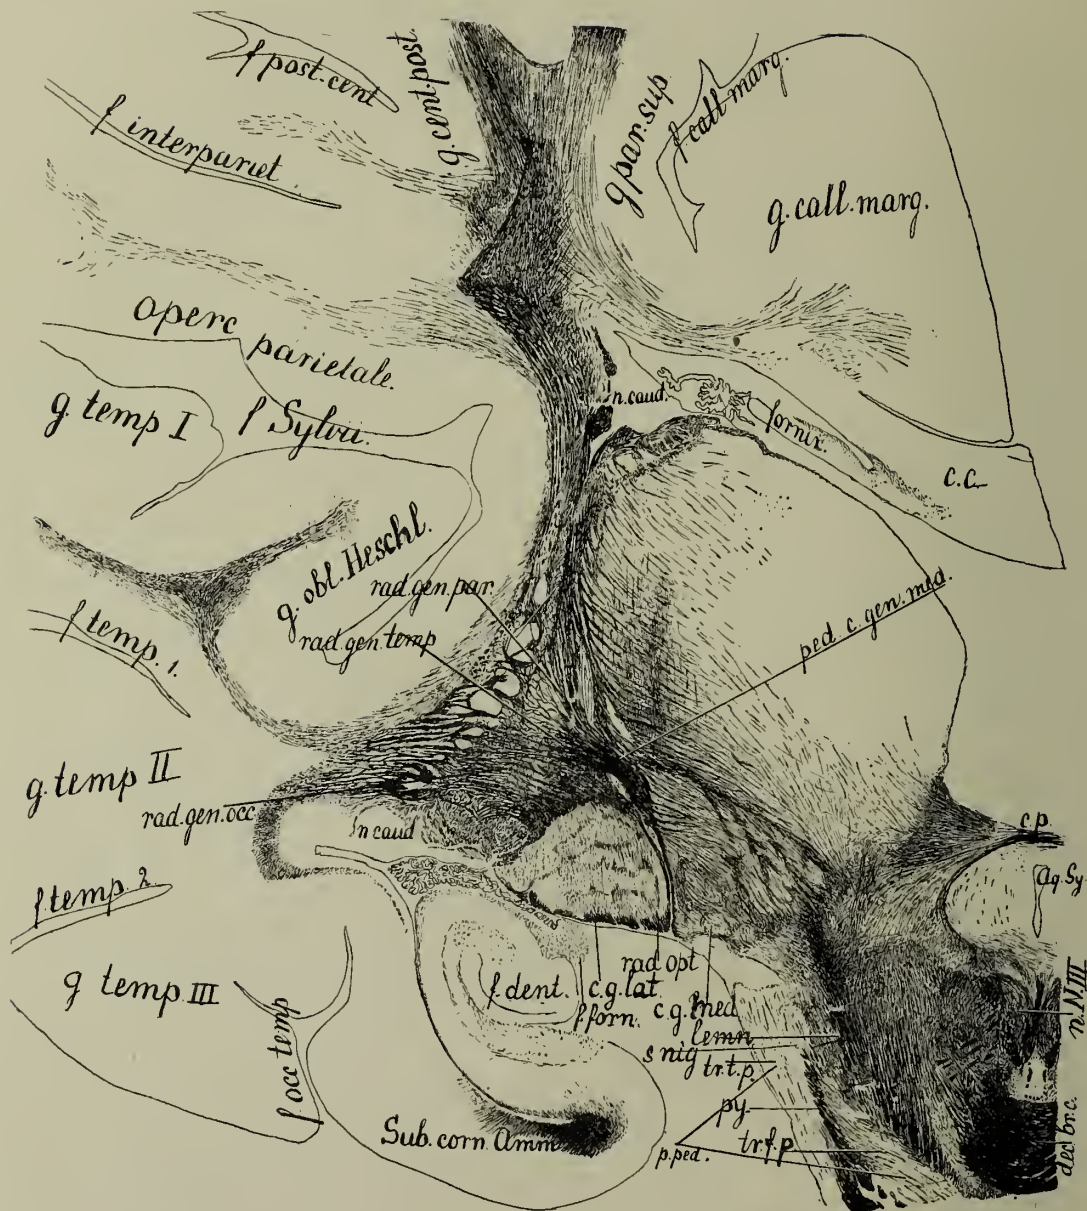 f post. cent
g. cent. post.
g par. sup
f call marg.
f interpariet
g. call. marg.
operc
parietale.
g. temp I
f Sylvii.
n. caud.
fornix.
c.c.
g. obl. Heschl.
rad. gen. par.
rad. gen. temp
ped c. gen. med.
f temp. 1.
g. temp II
rad. gen. occ
n caud
c.p.
aq. Sy.
f temp. 2
g temp III
f. dent.
rad opt
c.g. lat
f. forn.
c.g. med
n. N. III
lemn
s nig
tr. t. p.
f occ temp
py
Sub. corn. Amm
p. ped.
tr. f. p
dec br. c.